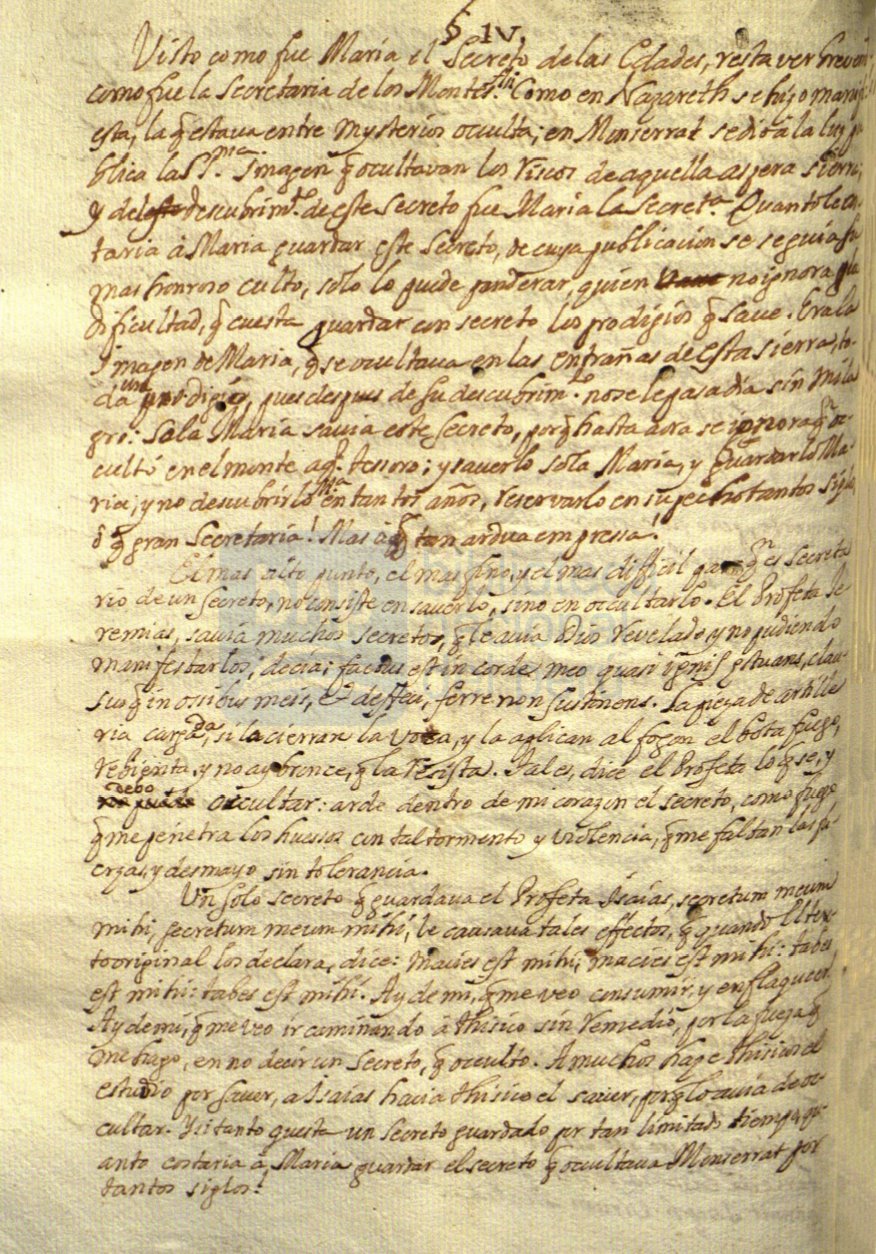 § IV.
Visto como fue Maria el Secreto de las Edades, resta ver breve
como fue la Secretaria de los Montes. Como en Nazareth se hizo mani
esta, la q̃ estava entre mysterios occulta; en Monserrat se dió à la luz pu
blica la SS.ma Imagen q̃ ocultavan los riscos de aquella aspera sierra;
y del descubrim.to de este secreto fue Maria la Secret.a Quanto le cos
taria à Maria guardar este Secreto, de cuya publicacion se seguia su
mas honroso culto, solo lo puede ponderar, quien no ignora la
dificultad, q̃ cuesta guardar con secreto los prodigios q̃ save. Era la
Imagen de Maria, q̃ se ocultava en las entrañas de esta sierra, to
da un prodigio, pues despues de su descubrim.to no se le pasa dia sin mila
gro: Sola Maria savia este Secreto, porq̃ hasta aora se ignora q.n oc
cultó en el monte aq.l tesoro; y saverlo sola Maria, y guardarlo Ma
ria; y no descubrirlo en tantos años, reservarlo en su pecho tantos siglos
ô q̃ gran Secretaria! Mas à q̃ tan ardua empressa!
El mas alto punto, el mas fino, y el mas difficil para q.n es secreta
rio de un secreto, no consiste en saverlo, sino en occultarlo. El Profeta Je
remias, savia muchos secretos, q̃ le avia Dios revelado y no pudiendo
manifestarlos, decia: factus est in corde meo quasi ignis estuans, clau
susq̃ in ossibus meis, & deffeci, ferre non sustinens. La pieza de artille
ria cargada, si la cierran la voca, y la aplican al fogon el bota fuego,
rebienta, y no ay bronce, q̃ la resista. Tal es, dice el Profeta lo q̃ se, y
debo occultar: arde dentro de mi corazon el secreto, como fuego
q̃ me penetra los huessos con tal tormento y violencia, q̃ me faltan las fu
erzas, y desmayo sin tolerancia.
Un solo secreto q̃ guardava el Profeta Isaias, secretum meum
mihi, secretum meum mihi, le causava tales effectos, q̃ quando el tex
to original los declara, dice: macies est mihi, macies est mihi: tabes
est mihi: tabes est mihi. Ay de mi, q̃ me veo consumir, y enflaquecer,
Ay de mi, q̃ me veo ir caminando à thisico sin remedio, por la fuerza q̃
me hago, en no decir un secreto, q̃ oculto. A muchos haze thisicos el
estudio por saver, a Isaias hacia thisico el saver, porq̃ lo avia de oc
cultar. Y si tanto questa un secreto guardado por tan limitado tiempo, qu
anto costaria à Maria guardar el secreto q̃ occultava Monserrat por
tantos siglos!